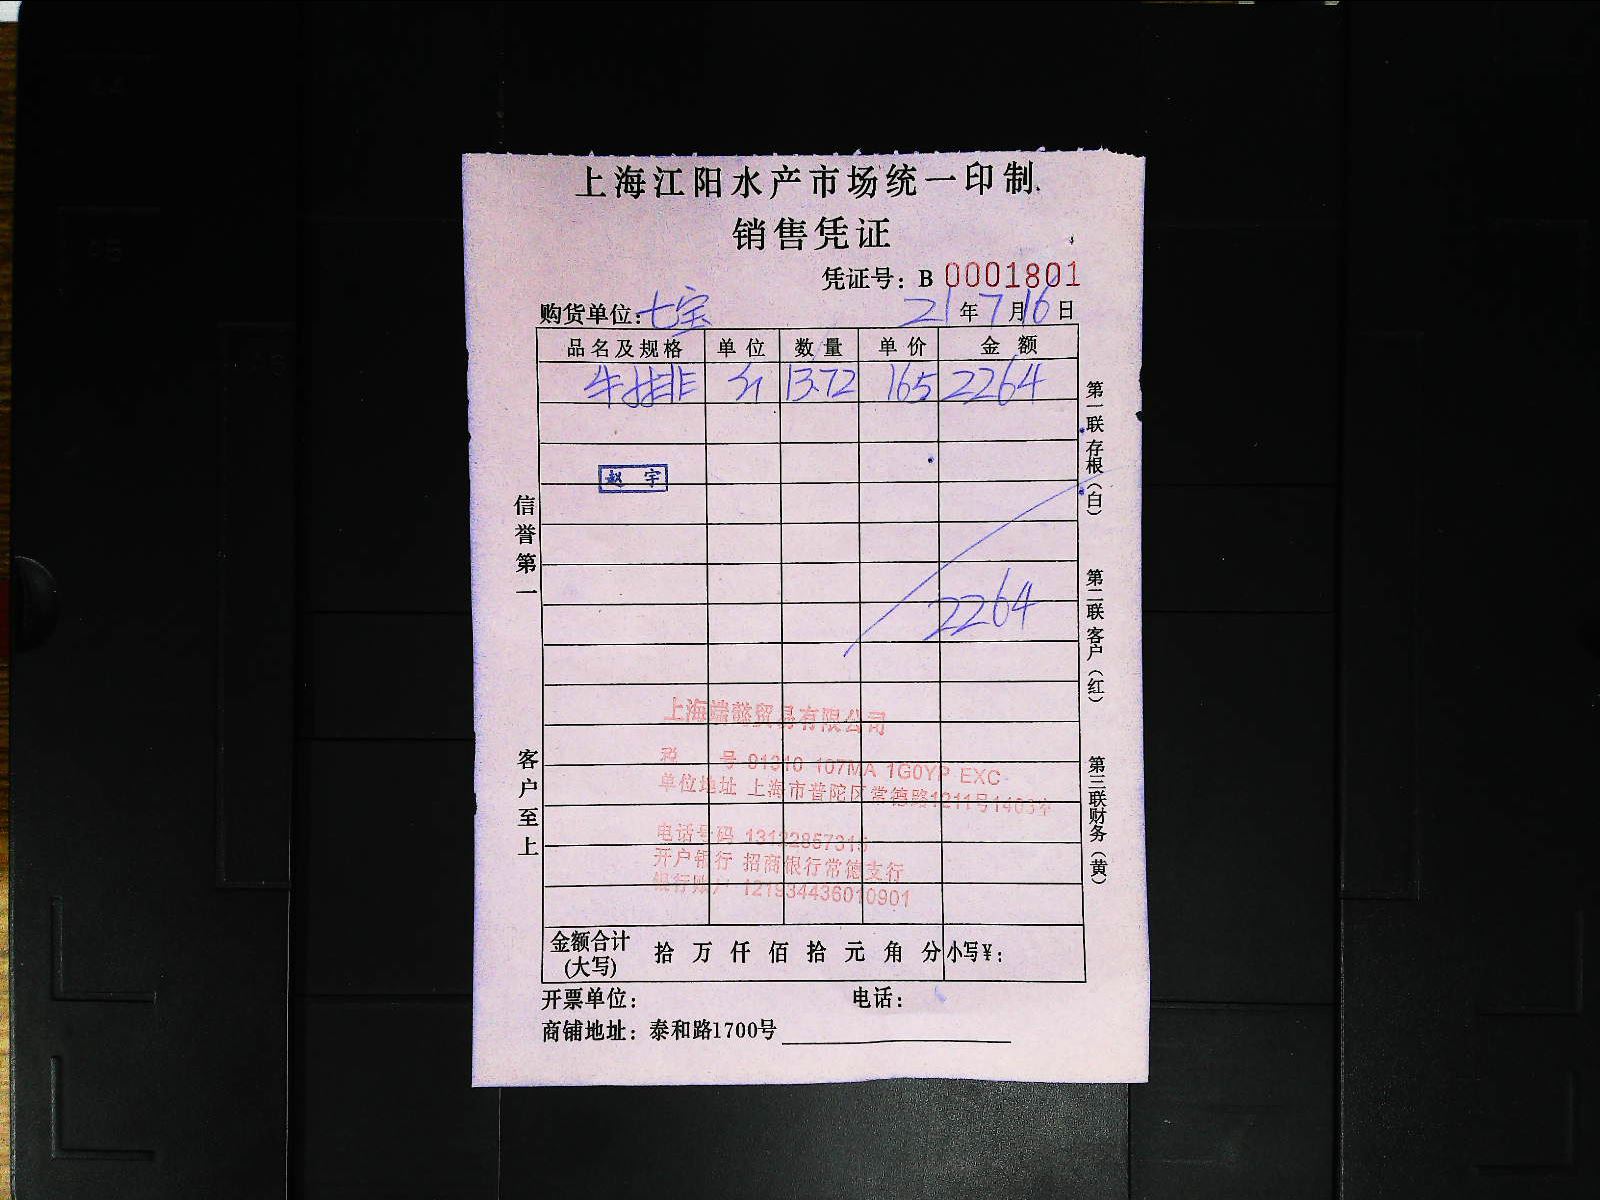 上海江阳水产市场统一印制
销售凭证
凭证号：B 0001801
购货单位：七宝 21年7月16日
品名及规格 单位 数量 单价 金额
牛排 斤 13.72 165 2264
赵宇
2264
上海端懿贸易有限公司
税 号 91310 107MA 1G0YP EXC
单位地址 上海市普陀区常德路1211号1403室
电话号码 13122857315
开户银行 招商银行常德支行
银行账户 121934436010901
金额合计(大写) 拾 万 仟 佰 拾 元 角 分 小写¥：
开票单位： 电话：
商铺地址：泰和路1700号
信誉第一
客户至上
第一联存根（白）
第二联客户（红）
第三联财务（黄）